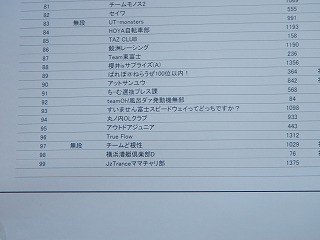 81 チームモノス2
82 セイワ 555
83 無段 UT-monsters 991
84 HOYA自転車部 1193
85 TAZ CLUB 158
86 鮫洲レーシング 1190
87 Team東富士 236
88 櫻井のサプライズ(A) 1356
89 ねらうぜ100位以内! 364
90 アットサンユウ 842
91 ちーむ選抜プレス課 568
92 teamOh!風呂ダァ発動機無部 84
93 すいません富士スピードウェイってどっちですか? 1098
94 丸ノ内OLクラブ 933
95 アウトドアジュニア 443
96 True Flow 1312
97 無段 チームど根性 1029
98 横浜漕艇倶楽部D 76
99 JzTranceママチャリ部 1375